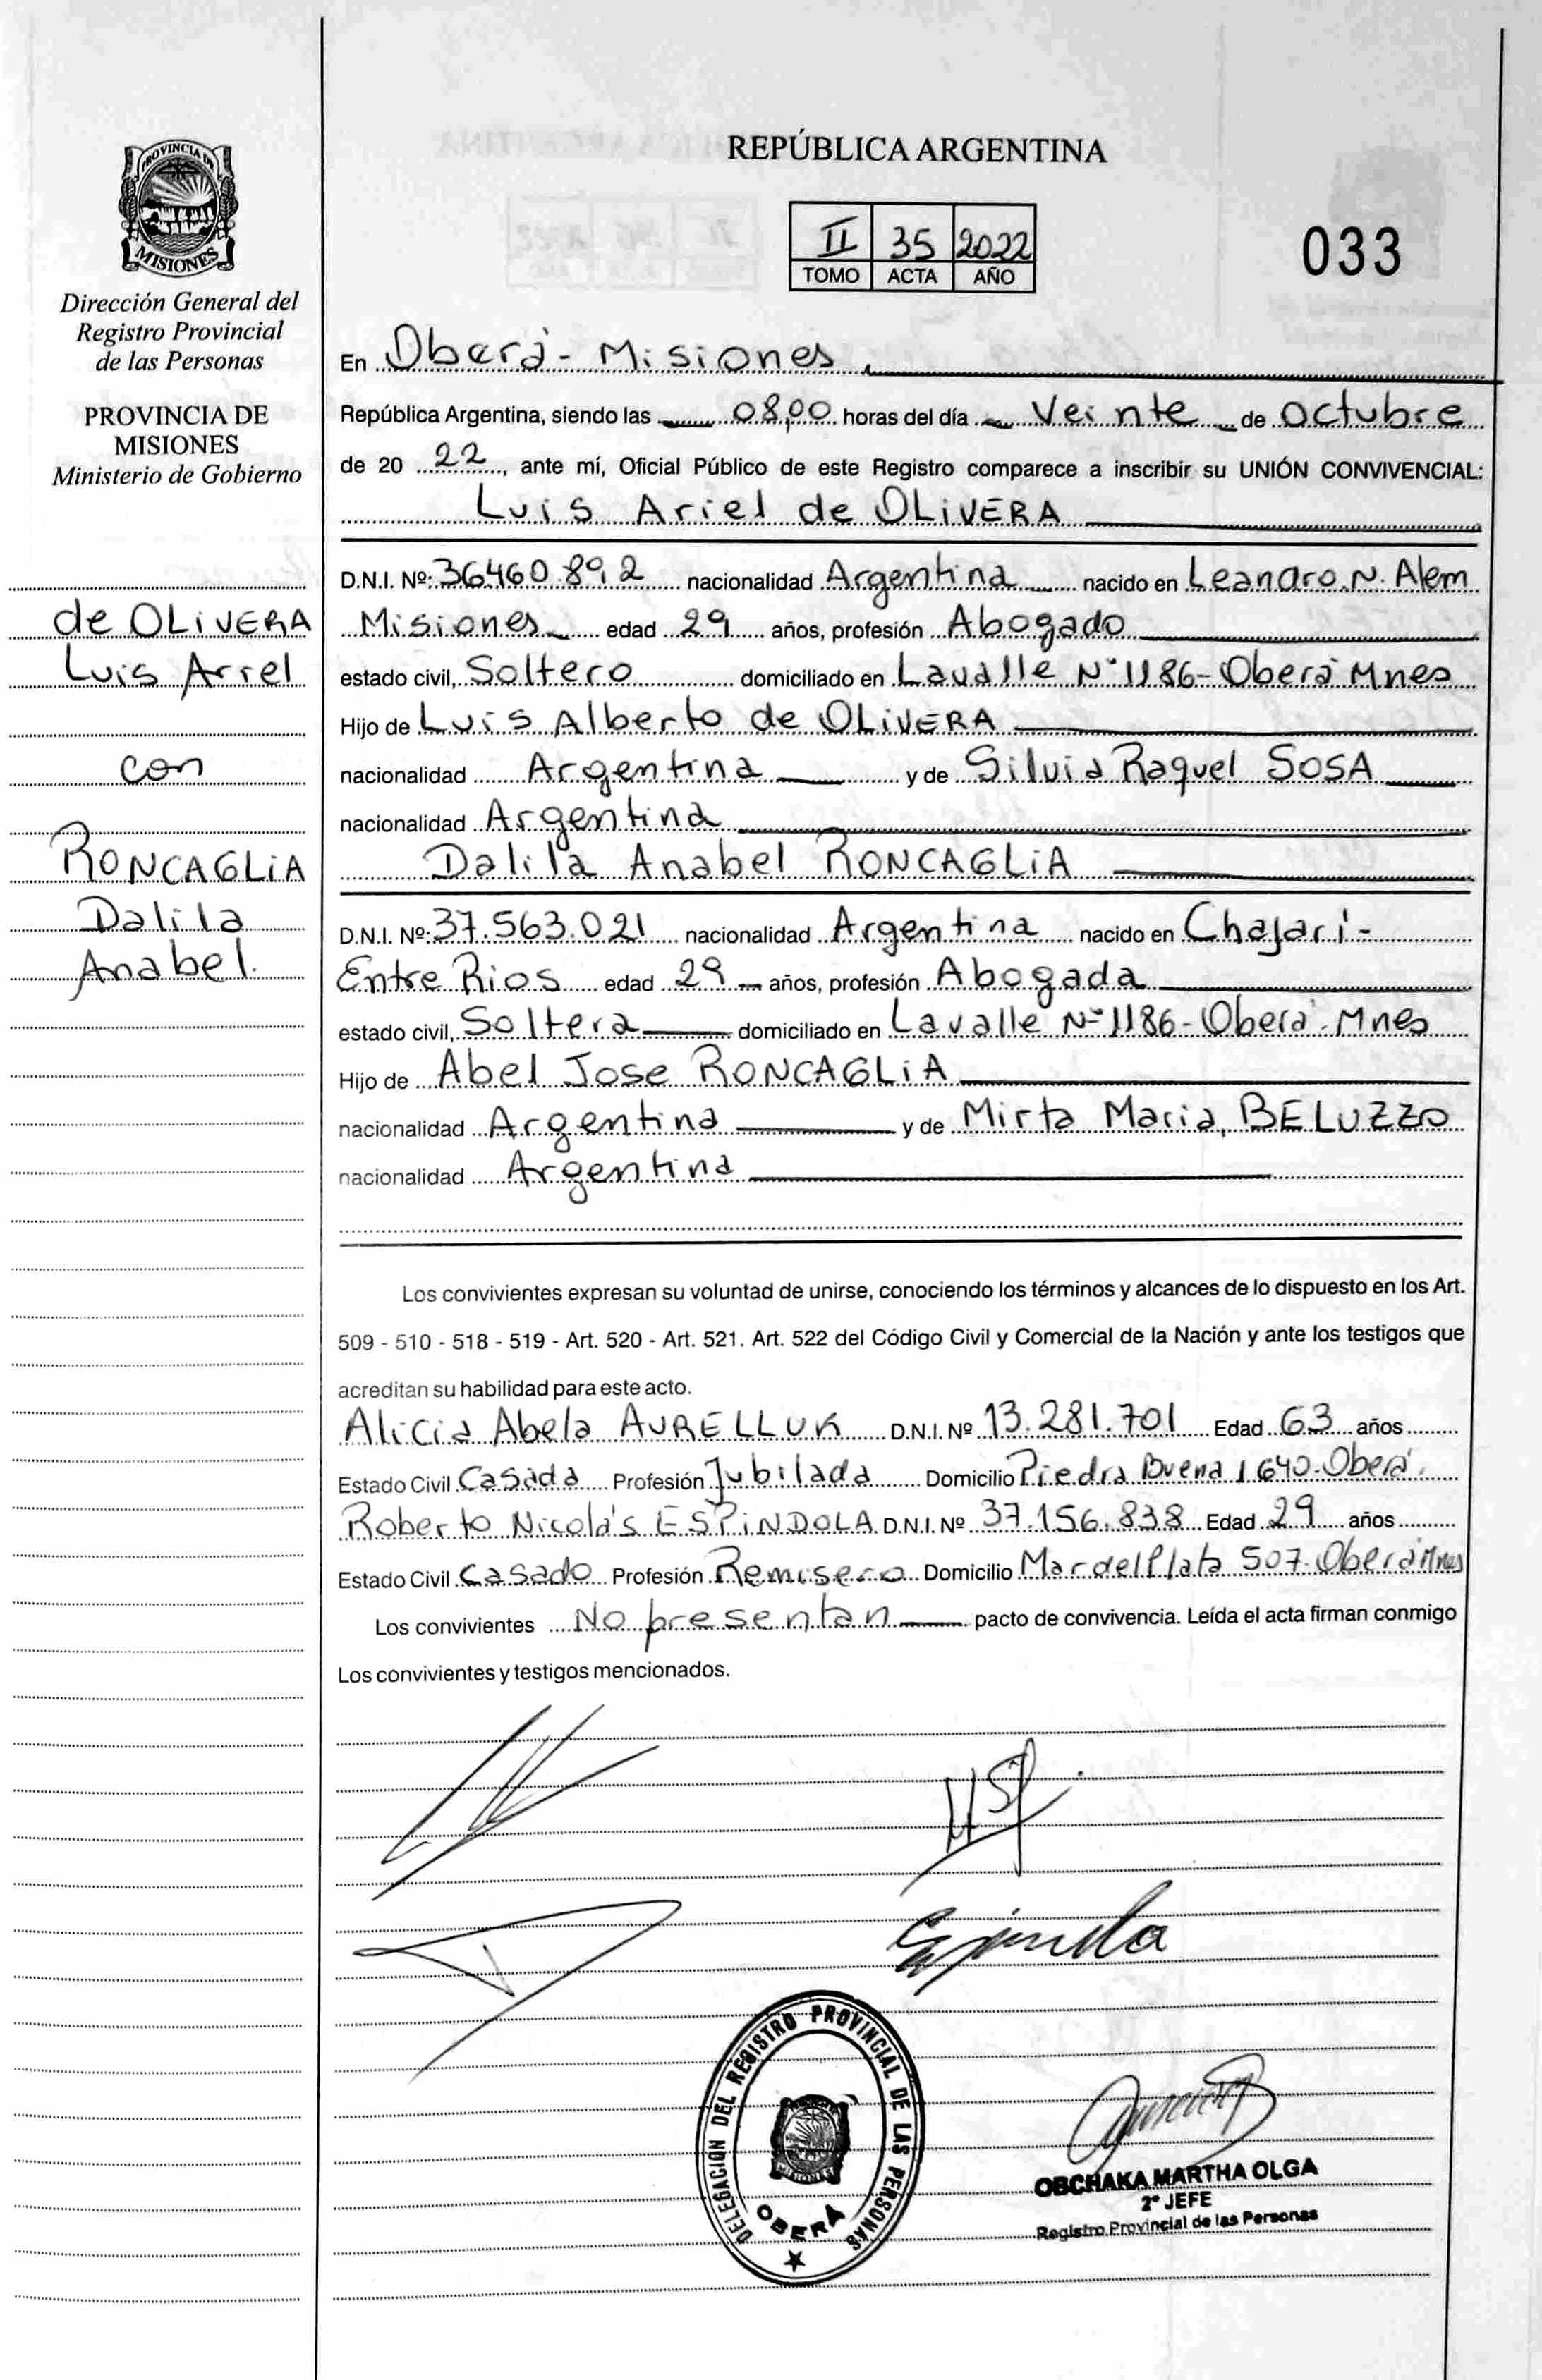 PROVINCIA DE
MISIONES
Dirección General del
Registro Provincial
de las Personas
PROVINCIA DE
MISIONES
Ministerio de Gobierno
de OLIVERA
Luis Ariel
con
RONCAGLIA
Dalila
Anabel.
REPÚBLICA ARGENTINA
II 35 2022
TOMO ACTA AÑO
033
En Oberá - Misiones
República Argentina, siendo las 08,00 horas del día Veinte de Octubre
de 20 22, ante mí, Oficial Público de este Registro comparece a inscribir su UNIÓN CONVIVENCIAL:
Luis Ariel de OLIVERA
D.N.I. Nº: 36460.892 nacionalidad Argentina nacido en Leandro N. Alem
Misiones edad 29 años, profesión Abogado
estado civil, Soltero domiciliado en Lavalle Nº 1186 - Oberá Mnes
Hijo de Luis Alberto de OLIVERA
nacionalidad Argentina y de Silvia Raquel SOSA
nacionalidad Argentina
Dalila Anabel RONCAGLIA
D.N.I. Nº: 37.563.021 nacionalidad Argentina nacido en Chajarí -
Entre Rios edad 29 años, profesión Abogada
estado civil, Soltera domiciliado en Lavalle Nº 1186 - Oberá - Mnes
Hijo de Abel Jose RONCAGLIA
nacionalidad Argentina y de Mirta Maria, BELUZZO
nacionalidad Argentina
Los convivientes expresan su voluntad de unirse, conociendo los términos y alcances de lo dispuesto en los Art.
509 - 510 - 518 - 519 - Art. 520 - Art. 521. Art. 522 del Código Civil y Comercial de la Nación y ante los testigos que
acreditan su habilidad para este acto.
Alicia Abela AURELLUK D.N.I. Nº 13.281.701 Edad 63 años
Estado Civil Casada Profesión Jubilada Domicilio Piedra Buena 1640 - Oberá
Roberto Nicolás ESPINDOLA D.N.I. Nº 37.156.838 Edad 29 años
Estado Civil Casado Profesión Remisero Domicilio Mar del Plata 507 - Oberá Mnes
Los convivientes No presentan pacto de convivencia. Leída el acta firman conmigo
Los convivientes y testigos mencionados.
DELEGACIÓN DEL REGISTRO PROVINCIAL DE LAS PERSONAS
MISIONES
OBERÁ
OBCHAKA MARTHA OLGA
2º JEFE
Registro Provincial de las Personas